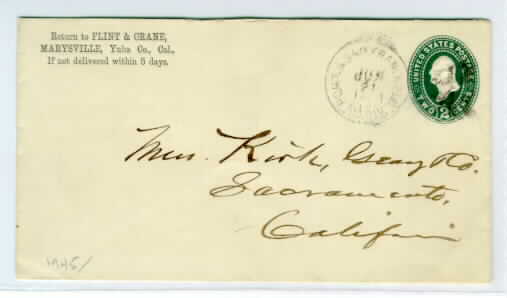 Return to FLINT & CRANE,
MARYSVILLE, Yuba Co., Cal.,
If not delivered within 5 days.
JUN
21
UNITED STATES POSTAGE
2
Kirk, Geary & Co.
Sacramento,
California
1945/